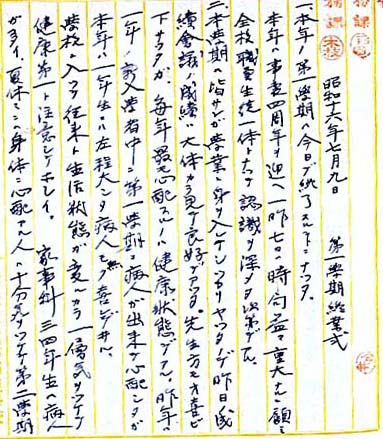 昭和十六年七月九日　第一学期終業式
一、本年ノ第一学期ハ今日デ終了スルコトニナツタ。
本年ハ事変四周年ヲ迎ヘ一昨七日時局益々重大ナルニ顧ミ
全校職員生徒一体トナツテ認識ヲ深メタ次第デス
二、本学期ハ皆サンガ学業ニ身ヲ入ケシツカリヤツタノデ昨日成
績会議ノ成績ハ大体カラ見テ良好デアツタ。先生方モオ喜ビ
下サツタガ、毎年最モ心配スルノハ健康状態デアル。昨年ハ
一年ノ入学者中ニ第一学期ニ病人ガ出来テ心配シタガ
本年ハ一年生ニハ左程大シタ病人モ無ク喜ンデヰル。
学校ニ入ツテ従来ト生活状態ガ変ルカラ一層気ヲツケテ
健康第一ト注意シテホシイ。家事科三四年生ハ病人
ガ多イ、夏休ミニハ身体ニ心配アル人ハ十分気ヲツケテ第二学期